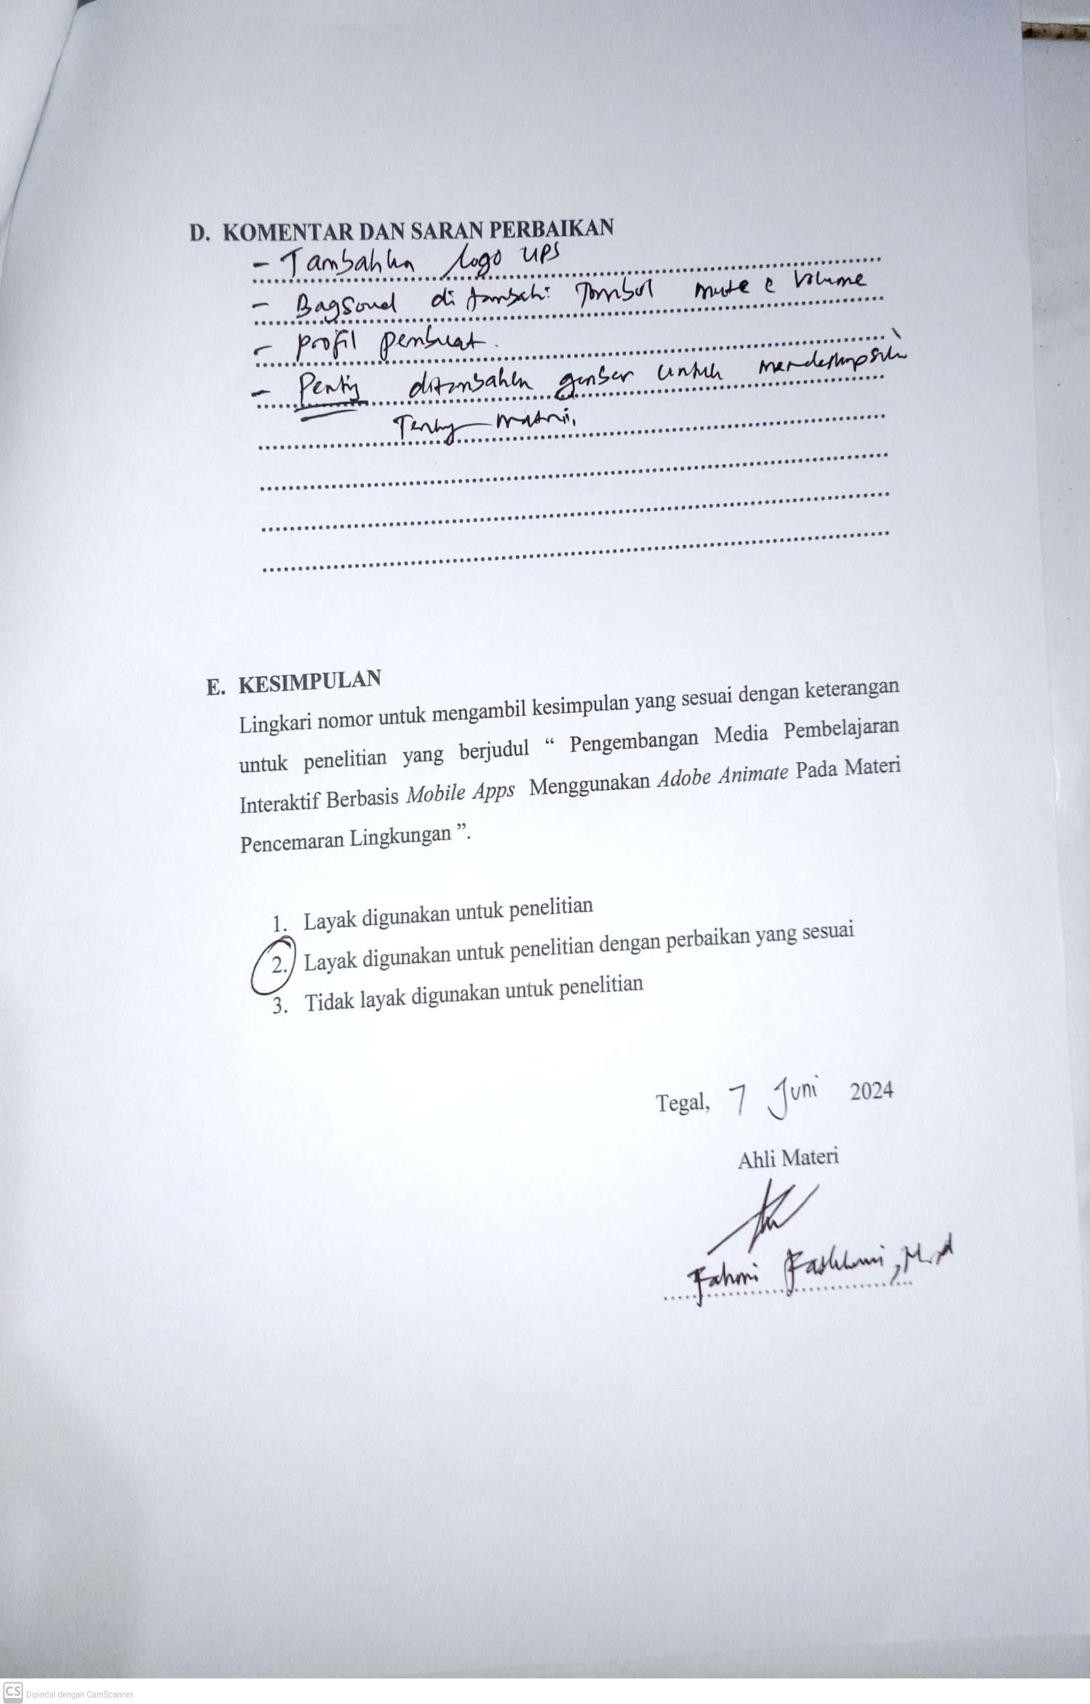 D. KOMENTAR DAN SARAN PERBAIKAN
- Tambahkn logo UPS
- Bagsoud di tambahi Tombol mute & Volume
- Profil pembuat.
- Penting ditambahkn gambar untuk mendeskripsikn
Tentang materi,
E. KESIMPULAN
Lingkari nomor untuk mengambil kesimpulan yang sesuai dengan keterangan
untuk penelitian yang berjudul “ Pengembangan Media Pembelajaran
Interaktif Berbasis Mobile Apps Menggunakan Adobe Animate Pada Materi
Pencemaran Lingkungan ”.
1. Layak digunakan untuk penelitian
2. Layak digunakan untuk penelitian dengan perbaikan yang sesuai
3. Tidak layak digunakan untuk penelitian
Tegal, 7 Juni 2024
Ahli Materi
Fahmi
CS Dipindai dengan CamScanner